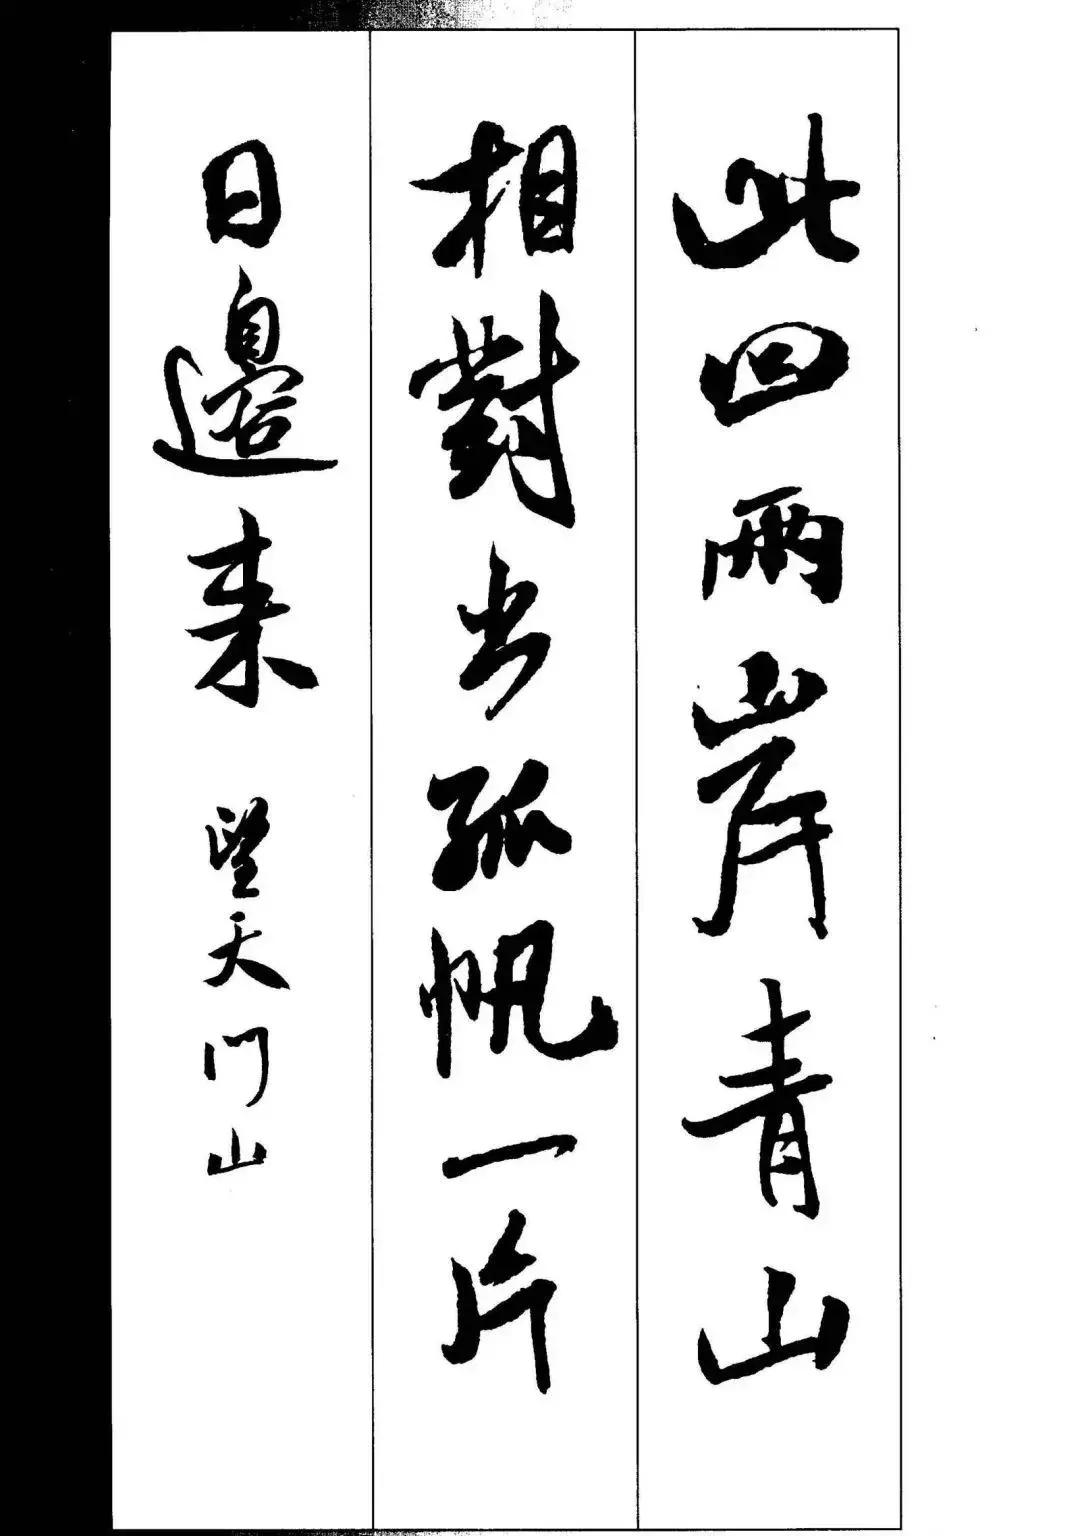 此回兩岸青山
相對出孤帆一片
日邊来 望天门山